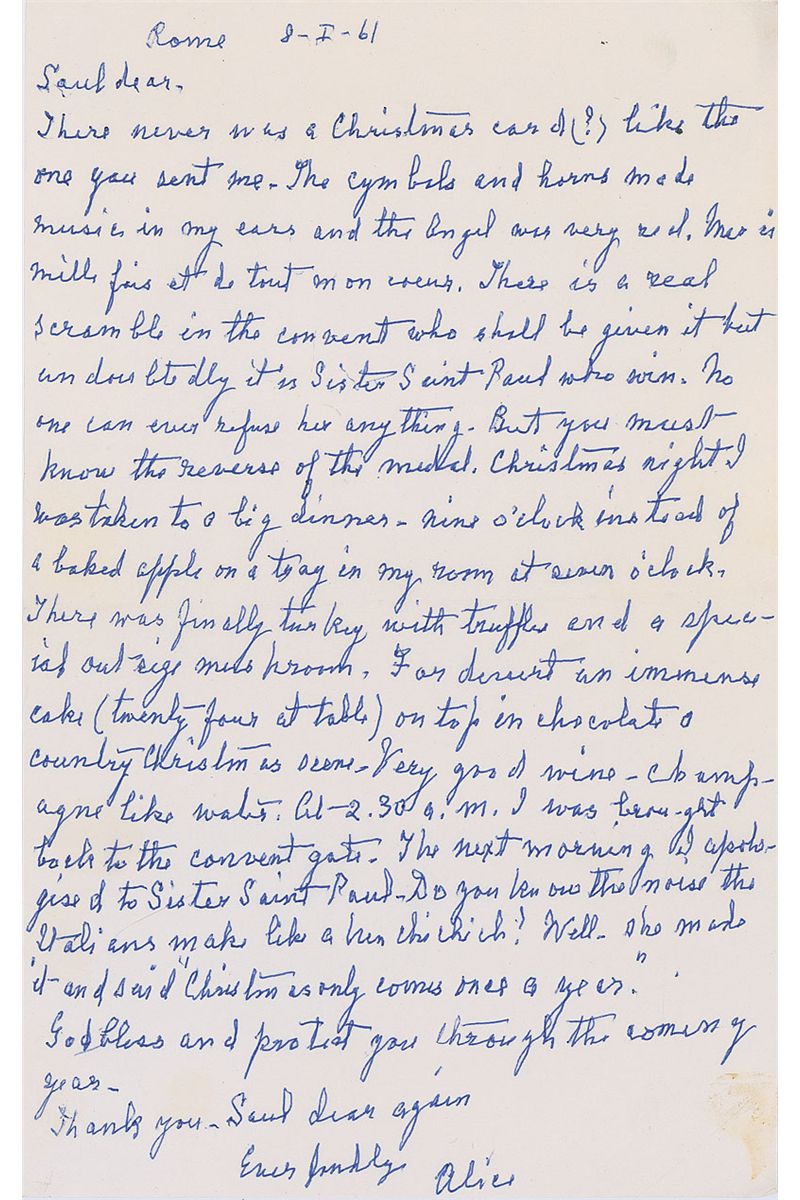 Rome 8-I-61
Saul dear.
There never was a Christmas card (?) like the
one you sent me - The cymbals and horns made
music in my ears and the Angel was very red. Merci
mille fois et de tout mon coeur. There is a real
scramble in the convent who shall be given it but
undoubtedly it is Sister Saint Paul who win. No
one can ever refuse her anything - But you must
know the reverse of the medal. Christmas night I
was taken to a big dinner - nine o'clock instead of
a baked apple on a tray in my room at seven o'clock.
There was finally turkey with truffles and a spec-
ial outsize mushroom. For desert an immense
cake (twenty four at table) on top in chocolate a
country Christmas scene - Very good wine - champ-
agne like water. At 2.30 a.m. I was brou-ght
back to the convent gate. The next morning I apolo-
gised to Sister Saint Paul - Do you know the noise the
Italians make like a hen chichich? Well - she made
it and said "Christmas only comes once a year."
God bless and protect you through the coming
year -
Thank you - Saul dear again
Ever fondly
Alice